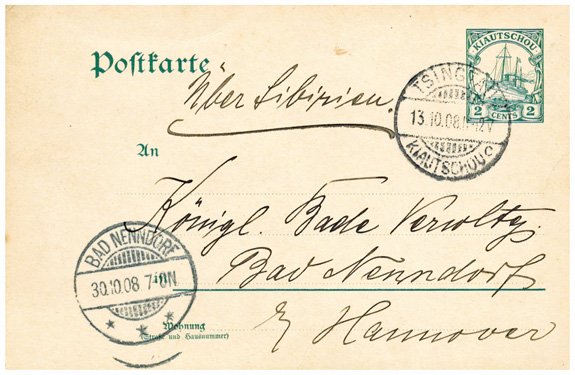 Postkarte
KIAUTSCHOU
2 CENTS 2
Über Sibirien.
TSINGTAU
13.10.08
KIAUTSCHOU
An
Königl. Bade Verwltg.
Bad Nenndorf
BAD NENNDORF
30.10.08 7-8N
Wohnung
(Straße und Hausnummer)
Hannover